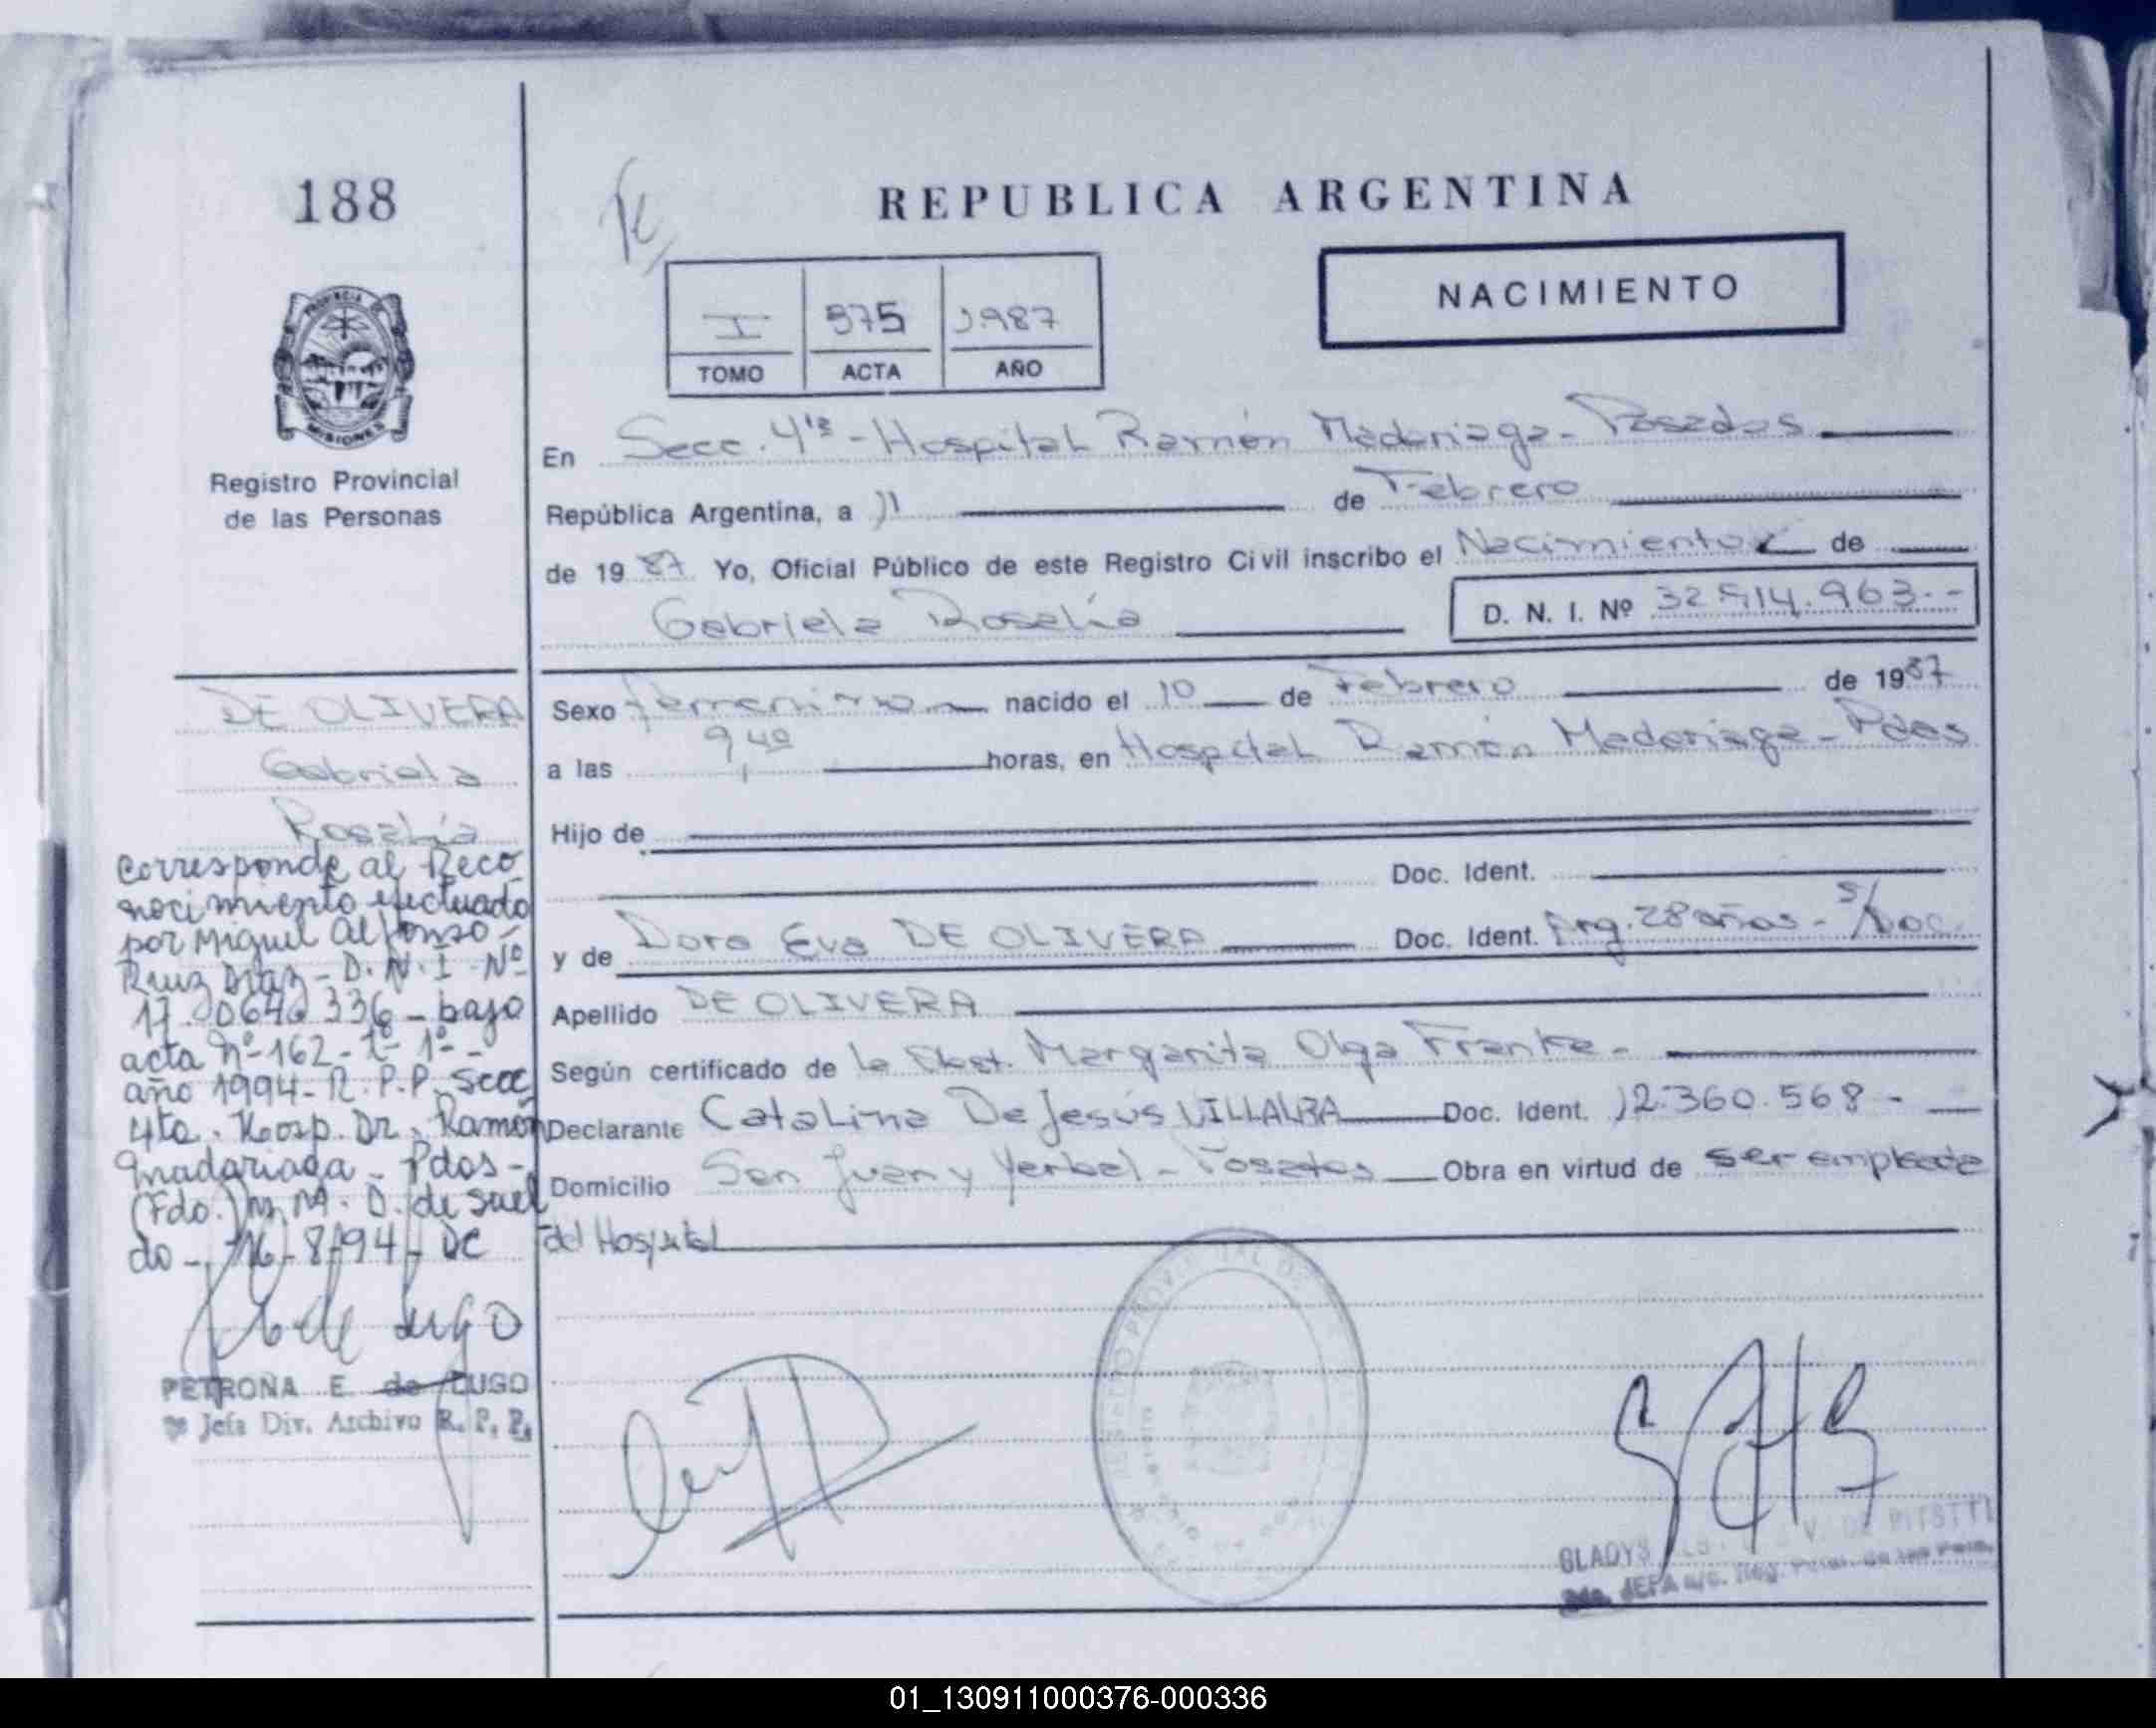 188
REPUBLICA ARGENTINA
NACIMIENTO
I 375 1987
TOMO ACTA AÑO
PROVINCIA
MISIONES
Registro Provincial
de las Personas
En Secc. 4ta - Hospital Ramón Madariaga - Posadas
República Argentina, a 11 de Febrero
de 19 87 Yo, Oficial Público de este Registro Civil inscribo el Nacimiento de
Gabriela Rosalía
D. N. I. Nº 32.914.963.-
DE OLIVERA
Gabriela
Rosalía
Sexo femenino nacido el 10 de Febrero de 1987
a las 9,40 horas, en Hospital Ramón Madariaga - Pdas
Hijo de
Doc. Ident.
y de Dora Eva DE OLIVERA Doc. Ident. Arg. 28 años - S/Doc.
Apellido DE OLIVERA
Según certificado de la Obst. Margarita Olga Franke -
Declarante Catalina De Jesús VILLALBA Doc. Ident. 12.360.568 -
Domicilio San Juan y Yerbal - Posadas Obra en virtud de ser empleada
del Hospital
Corresponde al Reco
nocimiento efectuado
por Miguel Alfonso
Ruiz Diaz - D.N.I. Nº
336 - bajo
acta Nº 162 - Tº 1º -
año 1994 - R.P.P. Secc
4ta. Hosp. Dr. Ramón
Madariaga - Pdas -
(Fdo.) M. M. D. de Suel
do - 16-8-94 - DC
PETRONA E. de LUGO
Jefa Div. Archivo R. P. P.
GLADYS V. DE PITOTTI
JEFA a/c. Reg. de las
01_130911000376-000336